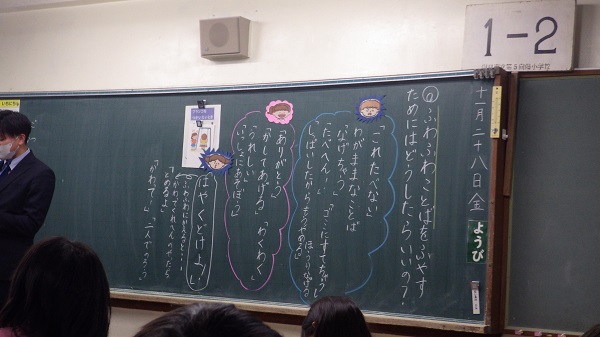 1-2
十一月二十八日金
ようび
めふわふわことばをふやす
ためにはどうしたらいいの?
「これたべない」
わがままなことば
なげちゃう
「たべへんー」「ゴミにすてちゃう」
しっぱいしたからもうやめる
「ありがとう」
「かしてあげる」「わくわく」
「うれしい」
いっしょにあそぼう
はやくどけよ!
ふわふわにかえると…
「かわってくれへんのやったら
かわってー」二人でのろう
いちにち